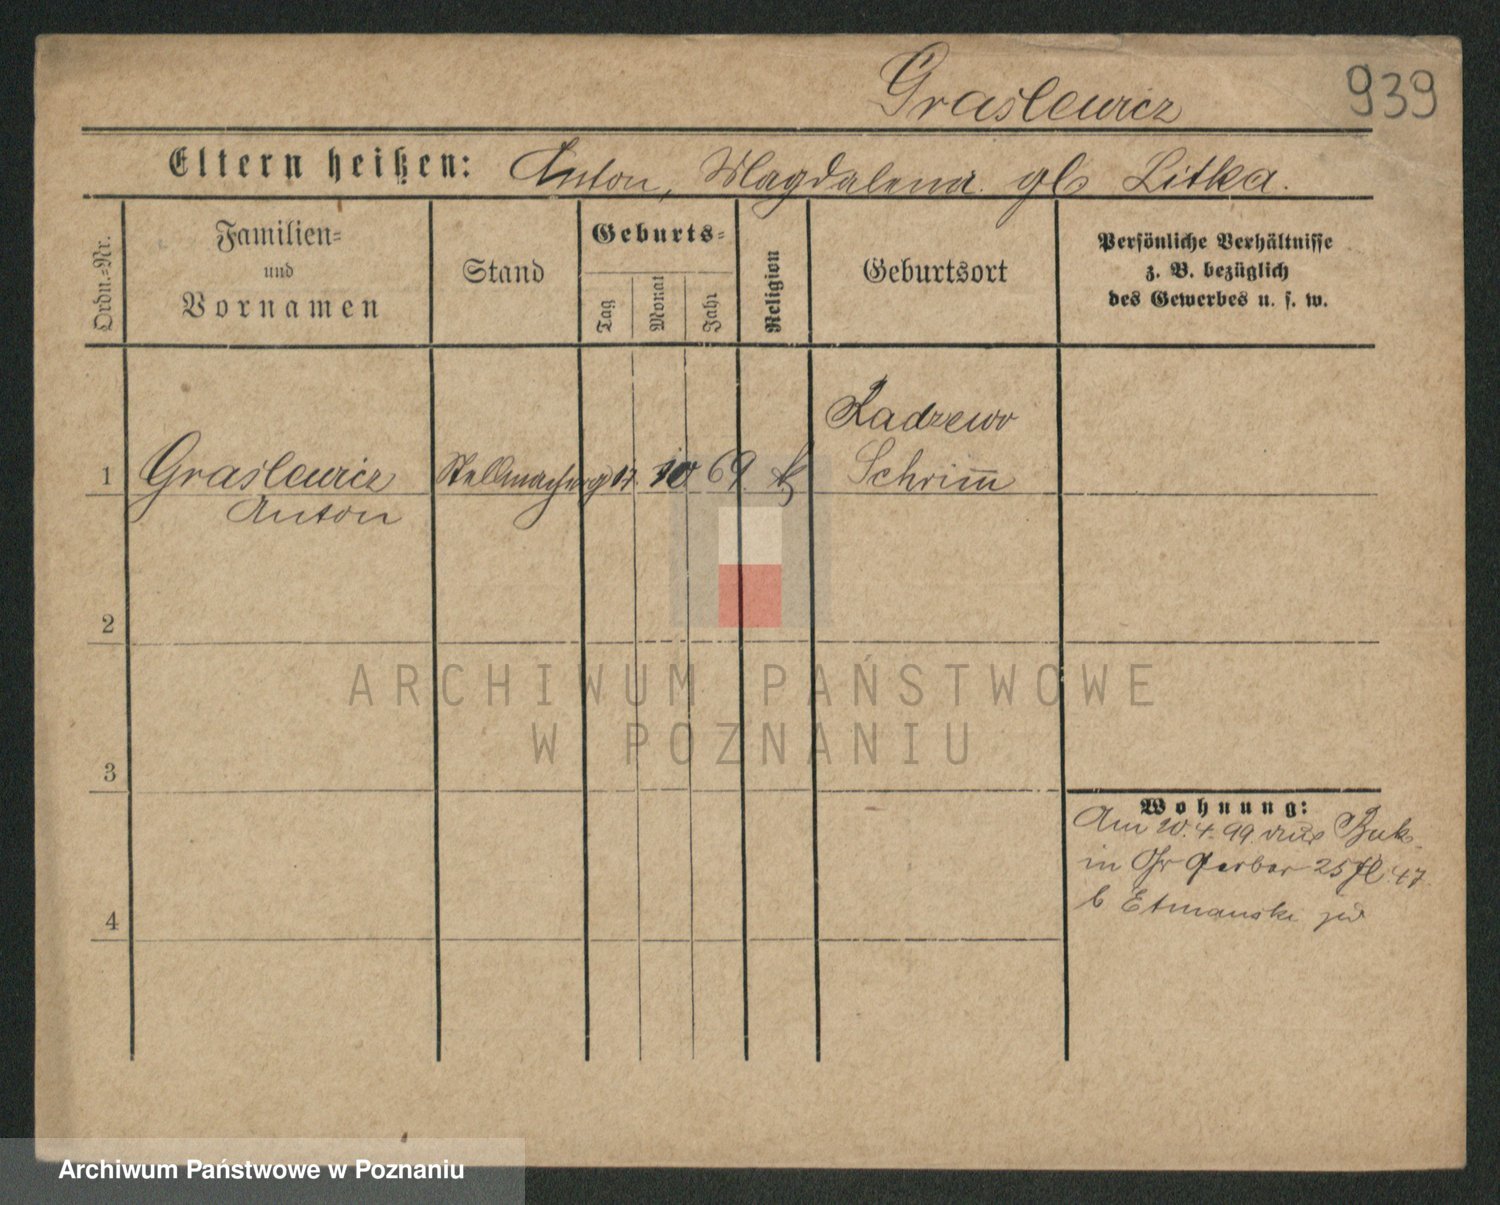 Graslewicz
939
Eltern heißen: Anton, Magdalena gb Litka.
Ordn.-Nr.
Familien-
und
Vornamen
Stand
Geburts-
Tag
Monat
Jahr
Religion
Geburtsort
Persönliche Verhältnisse
z. B. bezüglich
des Gewerbes u. s. w.
Radzewo
1 Graslewicz 17. 10 69 k Schrim̄
Anton
2
ARCHIWUM PAŃSTWOWE
W POZNANIU
3
Wohnung:
Am 10.4.99 Buk
in Gr Gerber 25 47
b Etmanski
4
Archiwum Państwowe w Poznaniu